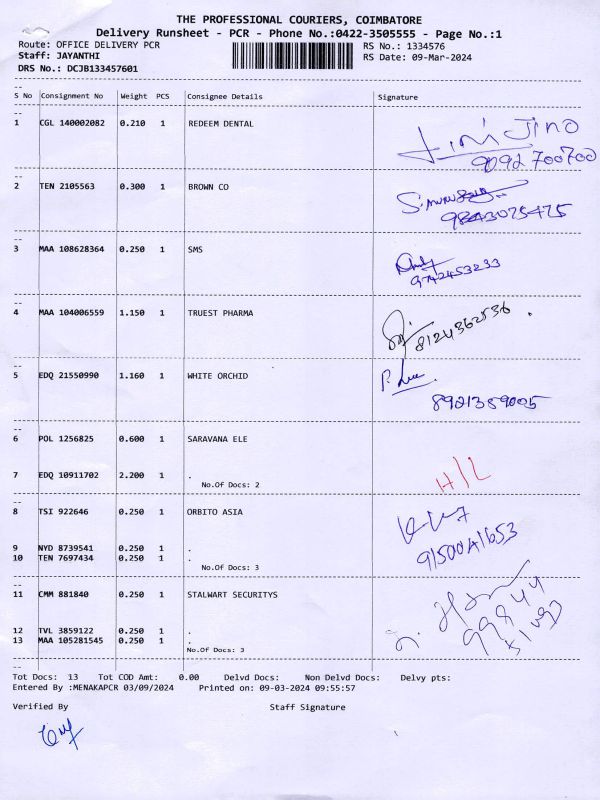 THE PROFESSIONAL COURIERS, COIMBATORE
Delivery Runsheet - PCR - Phone No.:0422-3505555 - Page No.:1
Route: OFFICE DELIVERY PCR RS No.: 1334576
Staff: JAYANTHI RS Date: 09-Mar-2024
DRS No.: DCJB133457601
--
S No Consignment No Weight PCS Consignee Details Signature
--
1 CGL 140002082 0.210 1 REDEEM DENTAL
9092 700700
--
2 TEN 2105563 0.300 1 BROWN CO
9843075475
--
3 MAA 108628364 0.250 1 SMS
9742453233
--
4 MAA 104006559 1.150 1 TRUEST PHARMA
8124362536
--
5 EDQ 21550990 1.160 1 WHITE ORCHID
8921359005
--
6 POL 1256825 0.600 1 SARAVANA ELE
7 EDQ 10911702 2.200 1 .
No.Of Docs: 2
--
8 TSI 922646 0.250 1 ORBITO ASIA
9 NYD 8739541 0.250 1 .
10 TEN 7697434 0.250 1 .
No.Of Docs: 3
--
11 CMM 881840 0.250 1 STALWART SECURITYS
12 TVL 3859122 0.250 1 .
13 MAA 105281545 0.250 1 .
No.Of Docs: 3
--
Tot Docs: 13 Tot COD Amt: 0.00 Delvd Docs: Non Delvd Docs: Delvy pts:
Entered By :MENAKAPCR 03/09/2024 Printed on: 09-03-2024 09:55:57
Verified By Staff Signature